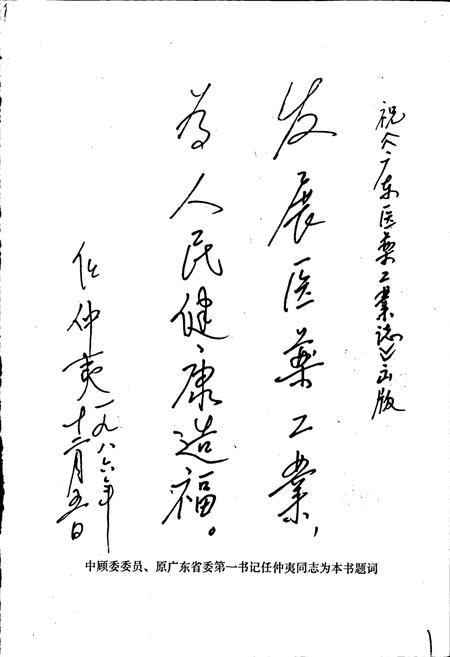 祝《广东医药工业志》出版
发展医药工业，
为人民健康造福。
任仲夷
一九八六年
十二月五日
中顾委委员、原广东省委第一书记任仲夷同志为本书题词